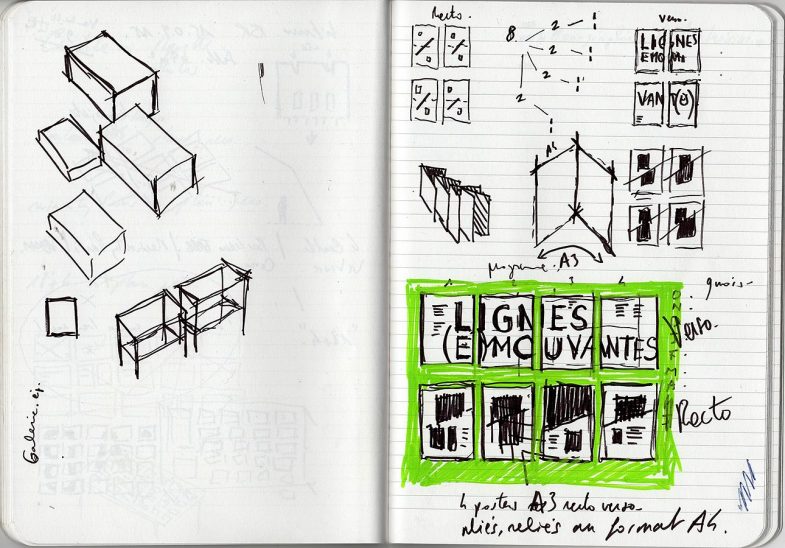 Galerie.
Recto.
Verso.
8
2
2
2
2
LIGNES
EMO
VANT(E)
A4
programme. A3
1 2 3 4
LIGNES
(E)MOUVANTES
Verso.
Recto
4 posters A3 recto verso.
pliés, reliés au format A4.